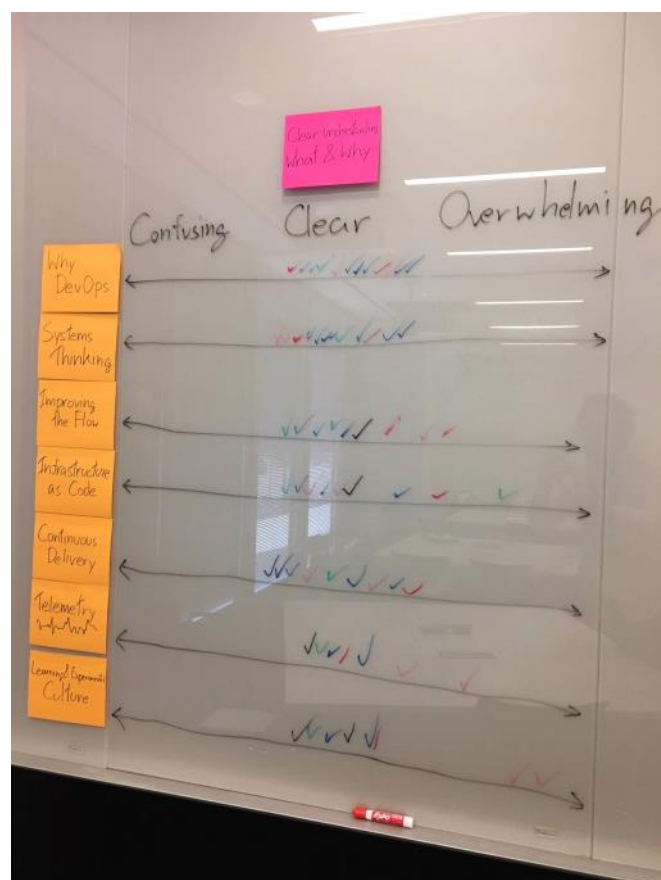 Clear Understanding
What & Why
Confusing Clear Overwhelming
Why
DevOps
Systems
Thinking
Improving
the Flow
Infrastructure
as Code
Continuous
Delivery
Telemetry
Learning &
Culture